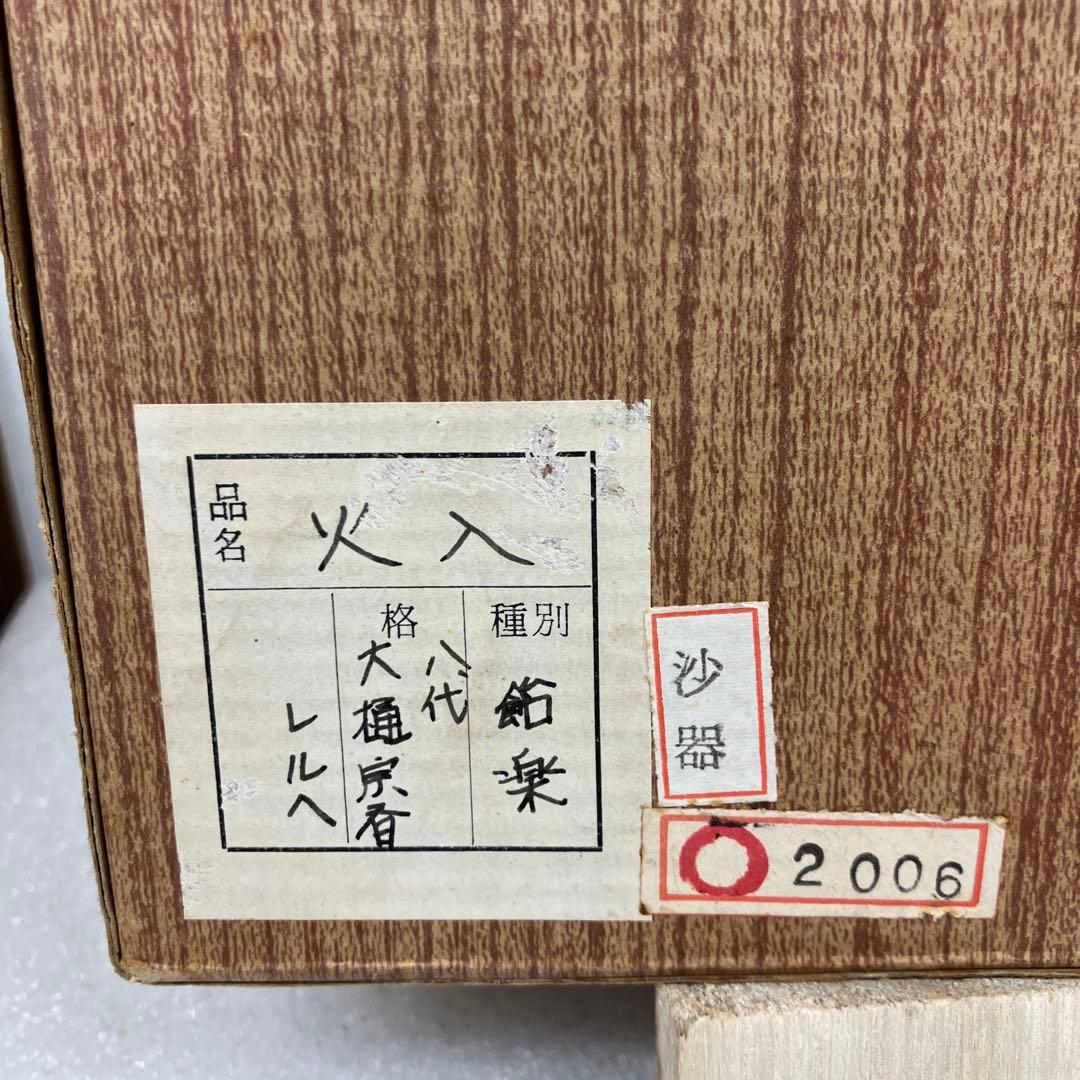 品名
火入
種別
飴楽
格
八代
大樋宗春
レルヘ
沙器
2006